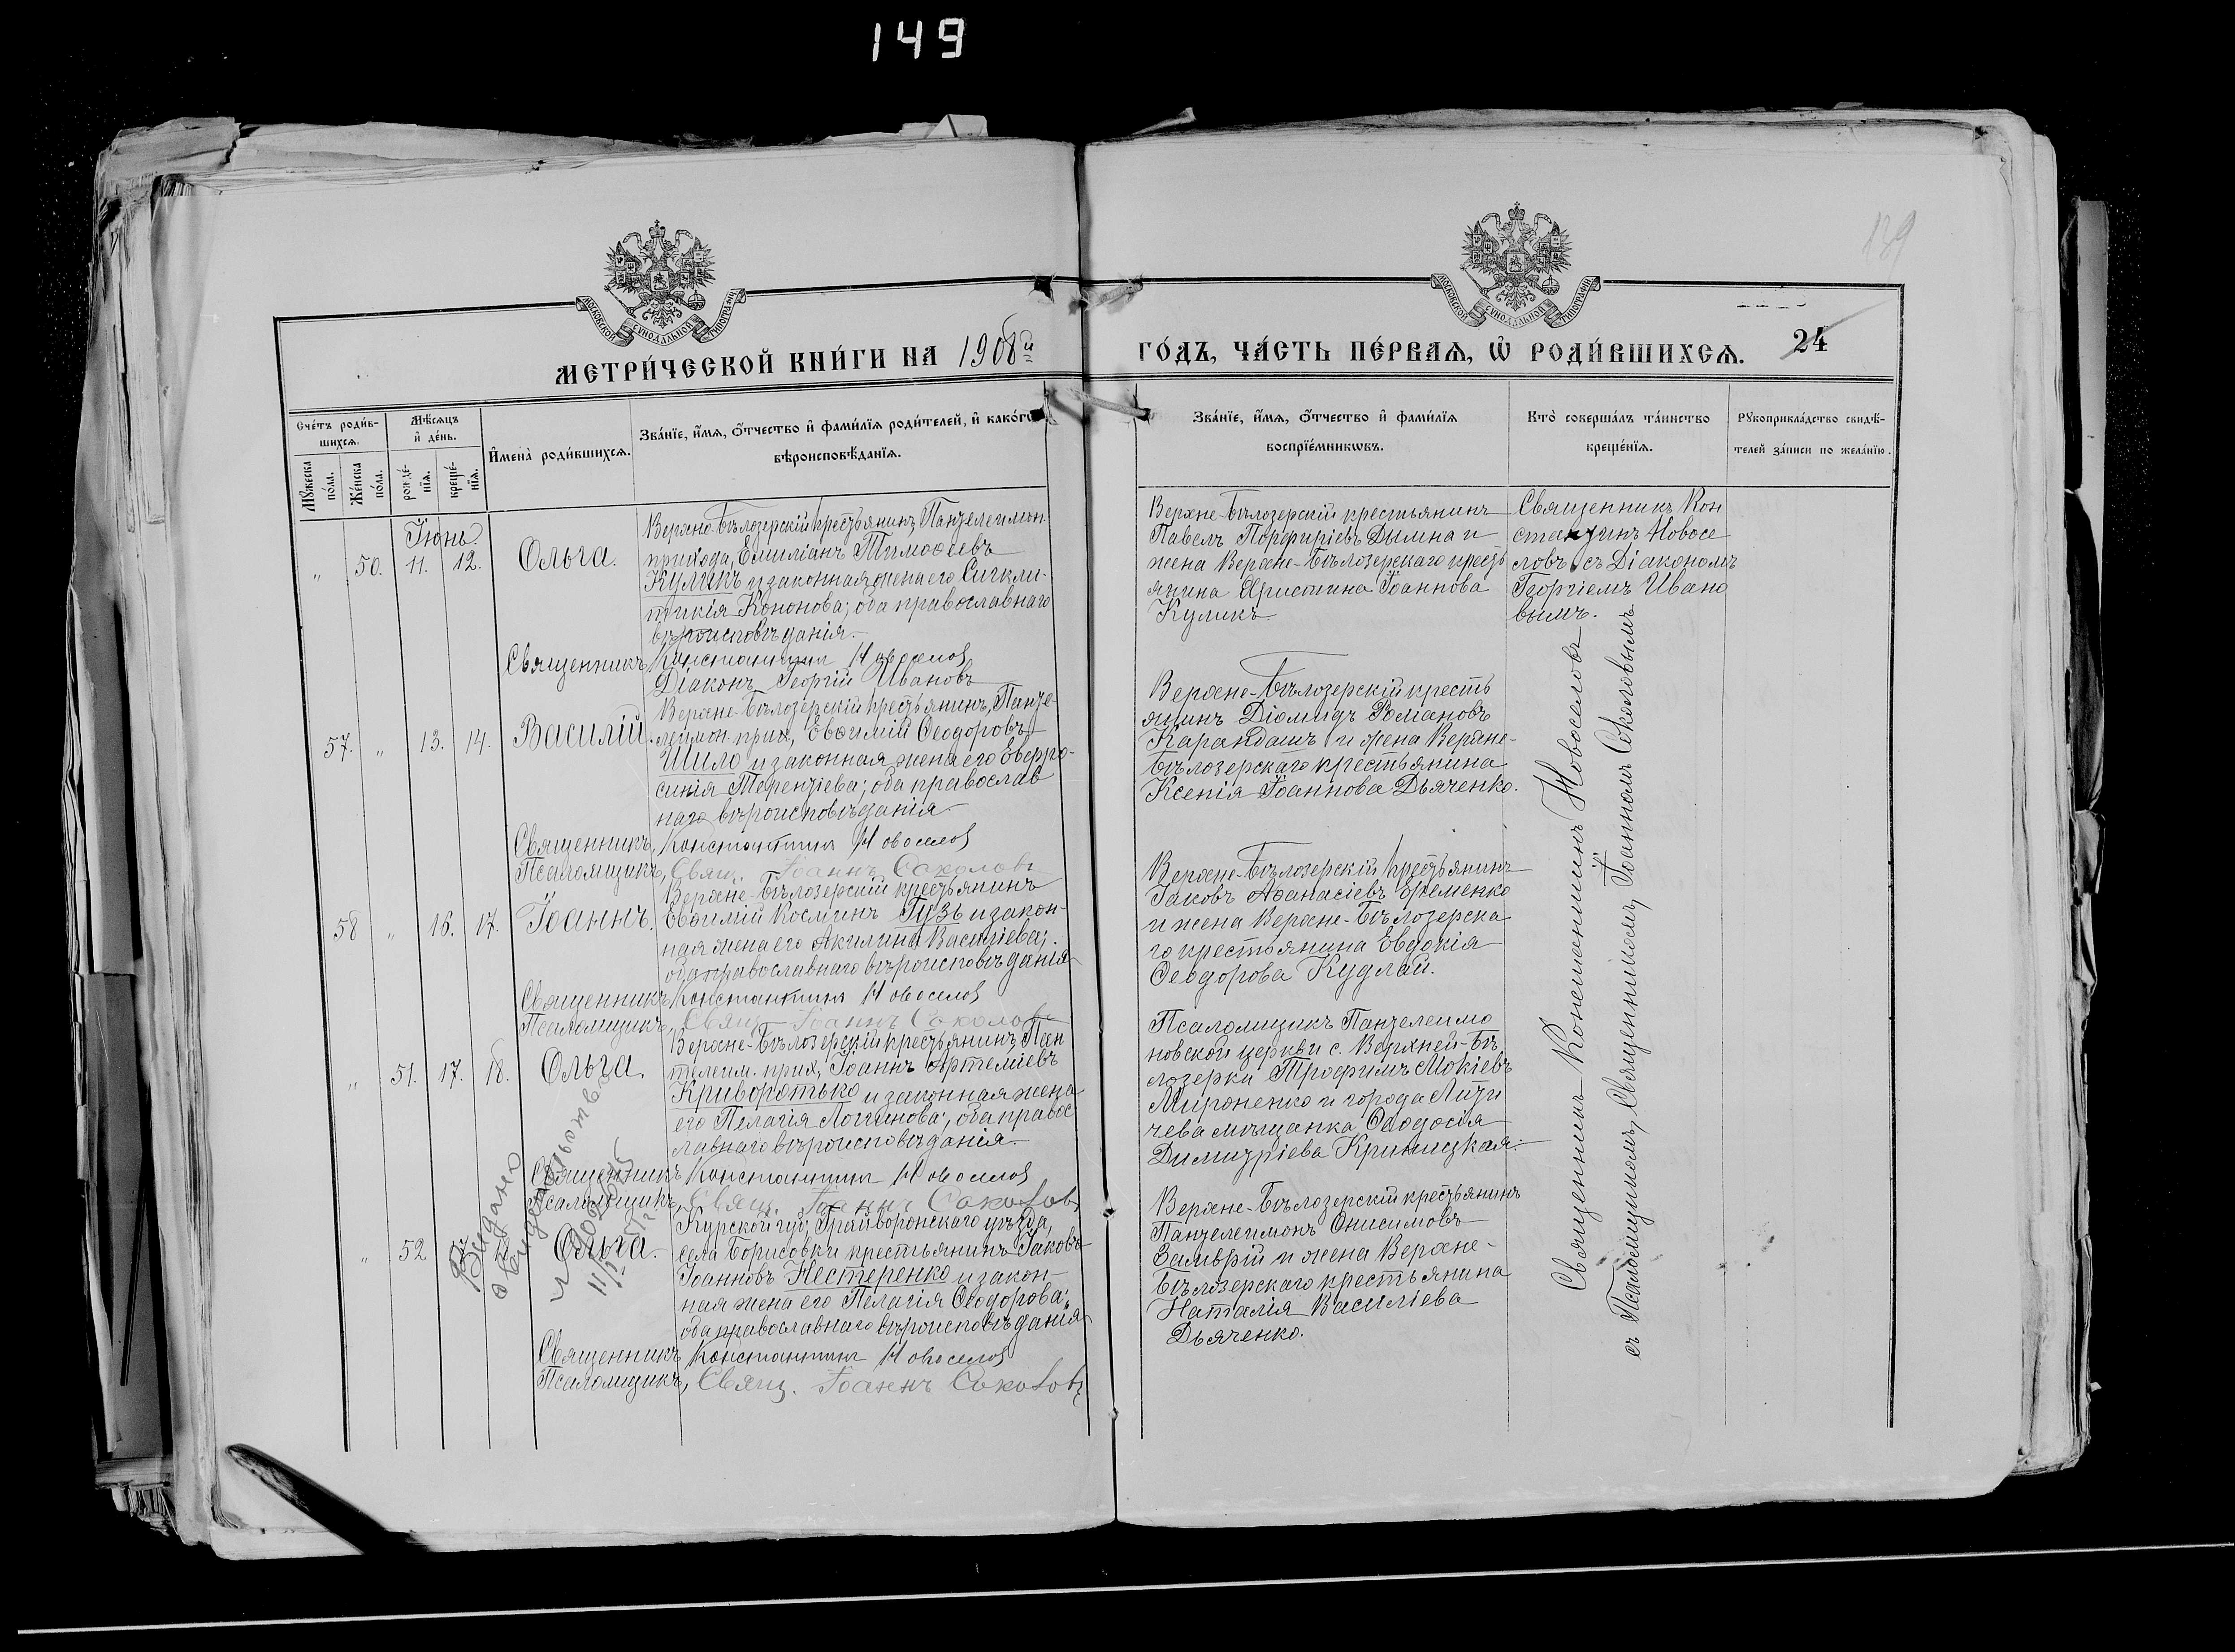 149
139
МОСКОВСКОЙ СѴНОДАЛЬНОЙ ТИПОГРАФІИ
МОСКОВСКОЙ СѴНОДАЛЬНОЙ ТИПОГРАФІИ
МЕТРИ́ЧЕСКОЙ КНИ́ГИ НА 1908й
ГО́ДЪ, ЧА́СТЬ ПЕ́РВАѦ, Ѡ РОДИ́ВШИХСѦ. 24
Сче́тъ роди́в-
шихсѧ.
Мꙋ́жеска
по́ла.
Же́нска
по́ла.
Мѣ́сѧцъ
и҆ де́нь.
рожде́-
нїѧ.
креще́-
нїѧ.
И҆мена̀ роди́вшихсѧ.
Зва́нїе, и҆́мѧ, ѻ҆́тчество и҆ фами́лїѧ роди́телей, и҆ како́гѡ
вѣроисповѣ́данїѧ.
Зва́нїе, и҆́мѧ, ѻ҆́тчество и҆ фами́лїѧ
воспрїе́мникѡвъ.
Кто̀ соверша́лъ та́инство
креще́нїѧ.
Рꙋкоприкла́дство свидѣ́-
телей за́писи по жела́нїю.
Іюнь
„ 50. 11. 12. Ольга.
Верхне-Бѣлозерскій крестьянинъ, Пантелеимон.
прихода, Емиліанъ Тимоѳеевъ
Куликъ и законная жена его Сигкли-
тикія Кононова; оба православнаго
вѣроисповѣданія.
Священникъ Константинъ Новоселов
Діаконъ Георгій Ивановъ
Верхне-Бѣлозерскій крестьянинъ
Павелъ Порфиріевъ Дымна и
жена Верхне-Бѣлозерскаго кресть
янина Христина Іоаннова
Куликъ.
Священникъ Кон
стантинъ Новосе
ловъ съ Діакономъ
Георгіемъ Ивано
вымъ.
57. „ 13. 14. Василій.
Верхне-Бѣлозерскій крестьянинъ, Панте-
леимон. прих., Евѳимій Ѳеодоровъ
Шило и законная жена его Евфро-
синія Терентіева; оба православ
наго вѣроисповѣданія.
Священникъ, Константинъ Новоселов
Псаломщикъ, Свящ. Іоаннъ Соколовъ
Верхне-Бѣлозерскій кресть
янинъ Діомидъ Романовъ
Карандашъ и жена Верхне-
Бѣлозерскаго крестьянина
Ксенія Іоаннова Дьяченко.
58 „ 16. 17. Іоаннъ.
Верхне-Бѣлозерскій крестьянинъ
Евѳимій Косминъ Гузь и закон-
ная жена его Акилина Василіева;
оба православнаго вѣроисповѣданія
Священникъ Константинъ Новоселов
Псаломщикъ, Свящ. Іоаннъ Соколовъ
Верхне-Бѣлозерскій крестьянинъ
Іаковъ Аѳанасіевъ Еременко
и жена Верхне-Бѣлозерска
го крестьянина Евдокія
Ѳеодорова Кудлай.
„ 51. 17. 18. Ольга.
Верхне-Бѣлозерскій крестьянинъ, Пан
телеим. прих., Іоаннъ Артеміевъ
Криворотько и законная жена
его Пелагія Логгинова; оба правос
лавнаго вѣроисповѣданія.
Священникъ Константинъ Новоселов
Псаломщикъ, Свящ. Іоаннъ Соколовъ
Псаломщикъ Пантелеимо
новской церкви с. Верхней-Бѣ
лозерки Трофимъ Мокіевъ
Мироненко и города Лити
чева мѣщанка Ѳеодосія
Димитріева Криницкая.
„ 52. Ольга.
Курской губ., Грайворонскаго уѣзда,
села Борисовки крестьянинъ Іаковъ
Іоанновъ Нестеренко и закон-
ная жена его Пелагія Ѳеодорова;
оба православнаго вѣроисповѣданія
Священникъ Константинъ Новоселов
Псаломщикъ, Свящ. Іоаннъ Соколовъ
Верхне-Бѣлозерскій крестьянинъ
Пантелеимонъ Онисимовъ
Замврій и жена Верхне-
Бѣлозерскаго крестьянина
Наталія Василіева
Дьяченко.
Видано
Священникъ Константинъ Новоселовъ
съ Псаломщикомъ, Священникомъ, Іоанномъ Соколовымъ